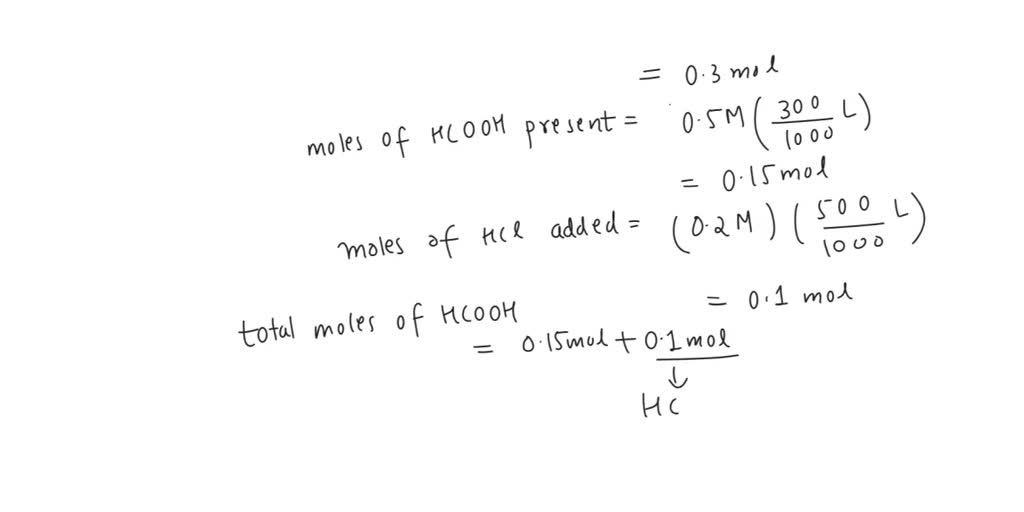 = 0.3 mol
moles of HCOOH present = 0.5M (300/1000 L)
= 0.15 mol
moles of HCl added = (0.2 M) (500/1000 L)
= 0.1 mol
total moles of HCOOH
= 0.15 mol + 0.1 mol
↓
HC